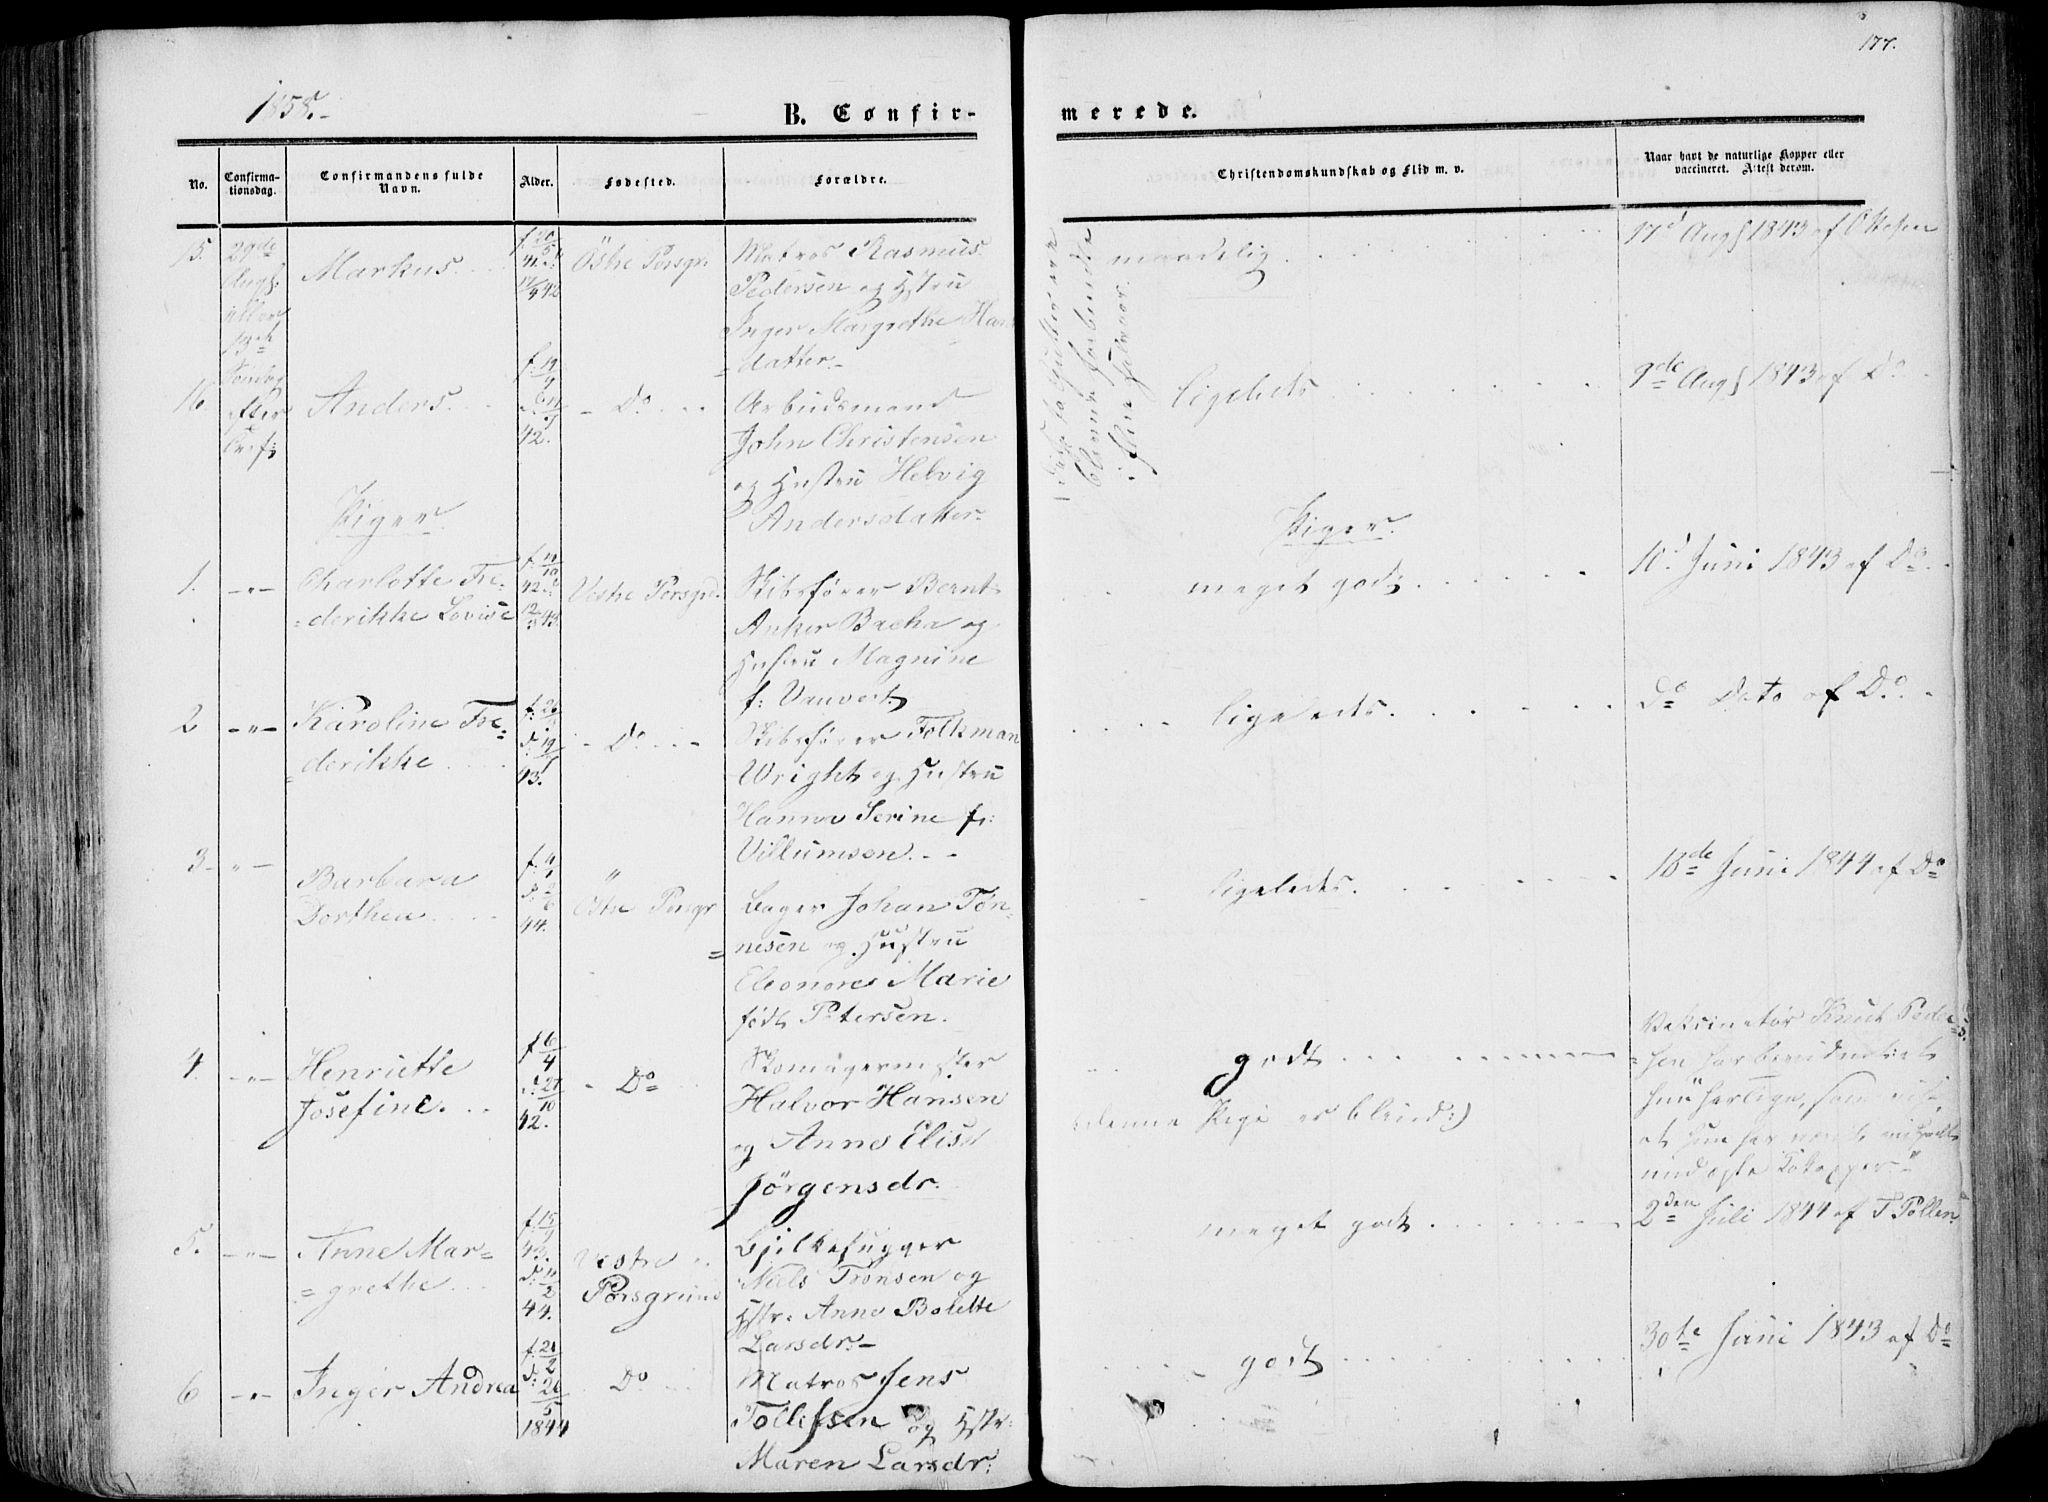 177.
1858.
B. Confirmerede.
No.
Confirmationsdag.
Confirmandens fulde Navn.
Alder.
Fødested.
Forældre.
Christendomskundskab og Flid m. v.
Naar havt de naturlige Kopper eller vaccineret. Attest derom.
15. 29de Augs: Markus. Östre Porsgr. Matros Rasmus
Pedersen og Hstru
Inger Margrethe Hans
datter.
maadelig. 17d Augs 1843 af
13de
Søndag
efter
Tref:
16 Anders. Do Arbeidsmand
John Christensen
og Hustru Helvig
Andersdatter.
42.
ligeledes 9de Augs 1843 af Do
Piger.
Piger.
1. Charlotte Fre=
=derikke Lovise
Vestre Porsgrd. Skibsfører Bernt
Anker Bacha og
Hustru Magnine
f:
meget godt 10d Juni 1843 af Do
2 Karoline Fre=
=derikke
43.
Do Skibsfører Folkman
Wright og Hustru
Hanna Serine f:
Villumsen.
ligeledes. Do Dato af Do
3 Barbara
Dorthea
44.
Östre Porsgr Bager Johan Tøn=
=nesen og Hustru
Eleonore Marie
født Petersen.
ligeledes. 18de Juni 1844 af Do
4. Henriette
Josefine.
f 6/4
d. 27/10
42.
Do Skomagermester
Halvor Hansen
og Anne Elise
Jörgensdr.
godt
(denne Pige er blind:)
Vaksinatør Knut Peder=
=sen har bevidnet at
at hun har været
med ægte Kokopper"
5. Anne Mar=
=grethe
f. 15/9
43.
d. 11/2
44.
Vestre
Porsgrund
Bjelkehugger
Niels Tronsen og
Hstr. Anne Bolette
Larsdr.
meget godt 2den Juli 1844 af T Pollen
6 Inger Andrea
f. 21/2
d: 26/5
1844
Do Matros Jens
Tollefsen og Hstr:
Maren Larsdr:
godt 30te Juni 1843 af Do